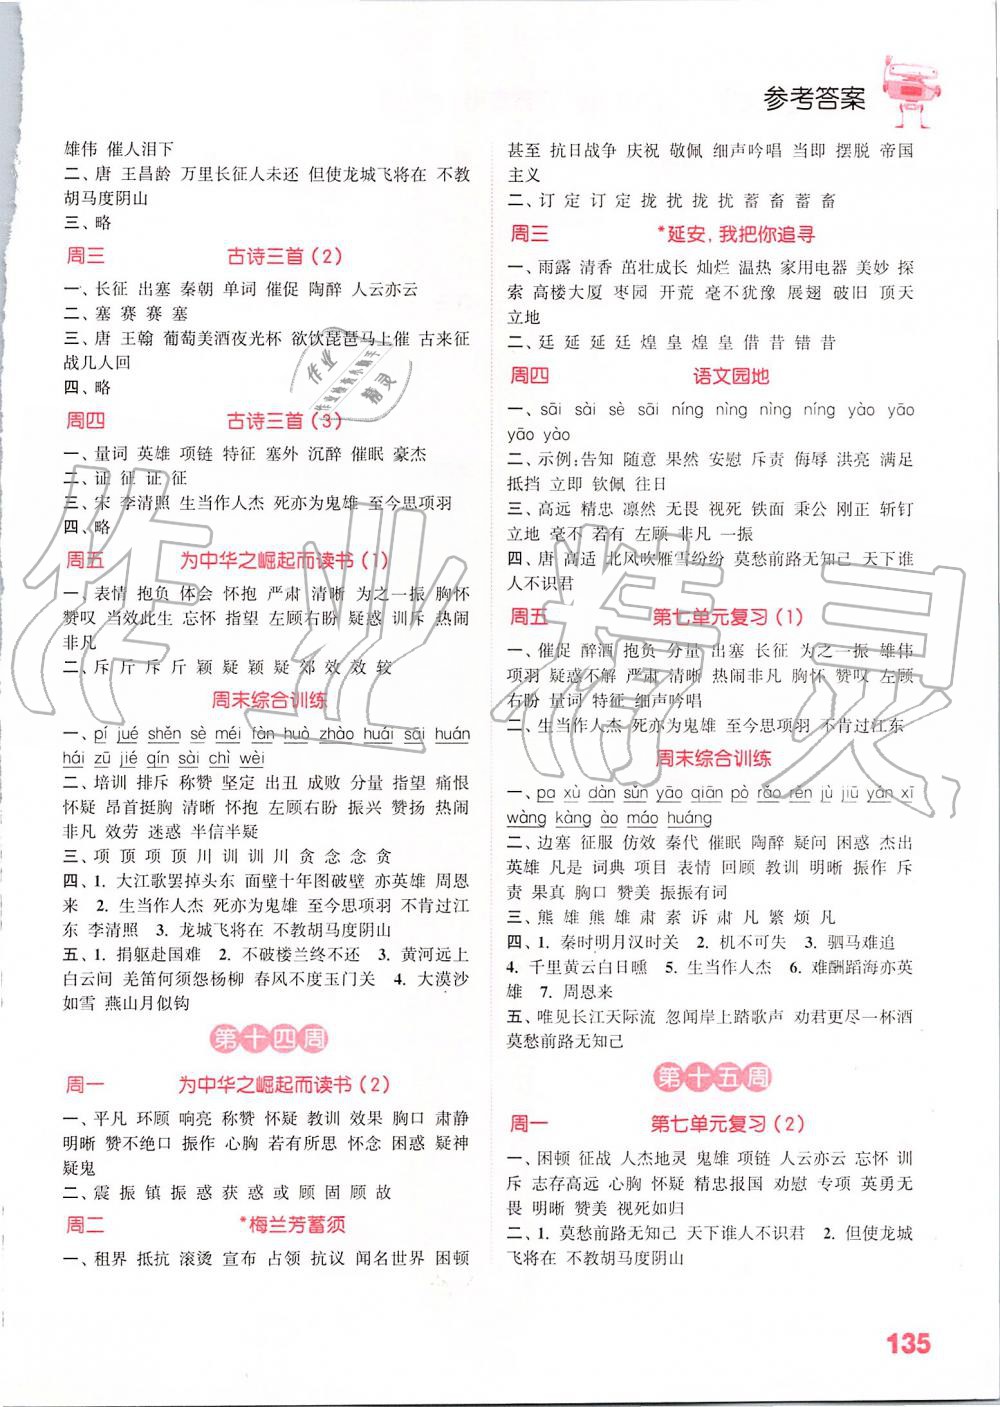 参考答案
雄伟 催人泪下
二、唐 王昌龄 万里长征人未还 但使龙城飞将在 不教
胡马度阴山
三、略
周三 古诗三首(2)
一、长征 出塞 秦朝 单词 催促 陶醉 人云亦云
二、塞 赛 赛 塞
三、唐 王翰 葡萄美酒夜光杯 欲饮琵琶马上催 古来征
战几人回
四、略
周四 古诗三首(3)
一、量词 英雄 项链 特征 塞外 沉醉 催眠 豪杰
二、证 征 证 征
三、宋 李清照 生当作人杰 死亦为鬼雄 至今思项羽
四、略
周五 为中华之崛起而读书(1)
一、表情 抱负 体会 怀抱 严肃 清晰 为之一振 胸怀
赞叹 当效此生 忘怀 指望 左顾右盼 疑惑 训斥 热闹
非凡
二、斥 斤 斥 斤 颖 疑 颖 疑 郊 效 效 较
周末综合训练
一、pí jué shěn sè méi fàn huò zhào huái sāi huán
hái zū jié qín sài chì wèi
二、培训 排斥 称赞 坚定 出丑 成败 分量 指望 痛恨
怀疑 昂首挺胸 清晰 怀抱 左顾右盼 振兴 赞扬 热闹
非凡 效劳 迷惑 半信半疑
三、项 顶 项 顶 川 训 训 川 贪 念 念 贪
四、1. 大江歌罢掉头东 面壁十年图破壁 亦英雄 周恩
来 2. 生当作人杰 死亦为鬼雄 至今思项羽 不肯过江
东 李清照 3. 龙城飞将在 不教胡马度阴山
五、1. 捐躯赴国难 2. 不破楼兰终不还 3. 黄河远上
白云间 羌笛何须怨杨柳 春风不度玉门关 4. 大漠沙
如雪 燕山月似钩
第十四周
周一 为中华之崛起而读书(2)
一、平凡 环顾 响亮 称赞 怀疑 教训 效果 胸口 肃静
明晰 赞不绝口 振作 心胸 若有所思 怀念 困惑 疑神
疑鬼
二、震 振 镇 振 惑 获 惑 或 顾 固 顾 故
周二 *梅兰芳蓄须
一、租界 抵抗 滚烫 宣布 占领 抗议 闻名世界 困顿
甚至 抗日战争 庆祝 敬佩 细声吟唱 当即 摆脱 帝国
主义
二、订 定 订 定 拢 扰 扰 拢 扰 蓄 畜 蓄 畜
周三 *延安,我把你追寻
一、雨露 清香 茁壮成长 灿烂 温热 家用电器 美妙 探
索 高楼大厦 枣园 开荒 毫不犹豫 展翅 破旧 顶天
立地
二、廷 延 延 廷 煌 皇 煌 皇 借 昔 借 昔
周四 语文园地
一、sāi sài sè sāi níng nìng nìng níng yào yāo
yāo yào
二、示例:告知 随意 果然 安慰 斥责 侮辱 洪亮 满足
抵挡 立即 钦佩 往日
三、高远 精忠 凛然 无畏 视死 铁面 秉公 刚正 斩钉
立地 毫不 若有 左顾 非凡 一振
四、唐 高适 北风吹雁雪纷纷 莫愁前路无知己 天下谁
人不识君
周五 第七单元复习(1)
一、催促 醉酒 抱负 分量 出塞 长征 为之一振 雄伟
项羽 疑惑不解 严肃 清晰 热闹非凡 胸怀 赞叹 左顾
右盼 量词 特征 细声吟唱
二、生当作人杰 死亦为鬼雄 至今思项羽 不肯过江东
周末综合训练
一、pa xù dàn sǔn yāo qiān pò rǎo rěn jù jiū yán xī
wàng kàng ào máo huáng
二、边塞 征服 仿效 秦代 催眠 陶醉 疑问 困惑 杰出
英雄 凡是 词典 项目 表情 回顾 教训 明晰 振作 斥
责 果真 胸口 赞美 振振有词
三、熊 雄 熊 雄 肃 素 诉 肃 凡 繁 烦 凡
四、1. 秦时明月汉时关 2. 机不可失 3. 驷马难追
4. 千里黄云白日曛 5. 生当作人杰 6. 难酬蹈海亦英
雄 7. 周恩来
五、唯见长江天际流 忽闻岸上踏歌声 劝君更尽一杯酒
莫愁前路无知己
第十五周
周一 第七单元复习(2)
一、困顿 征战 人杰地灵 鬼雄 项链 人云亦云 忘怀 训
斥 志存高远 心胸 怀疑 精忠报国 劝慰 专项 英勇无
畏 明晰 赞美 视死如归
二、1. 莫愁前路无知己 天下谁人不识君 2. 但使龙城
飞将在 不教胡马度阴山
135
作业精灵